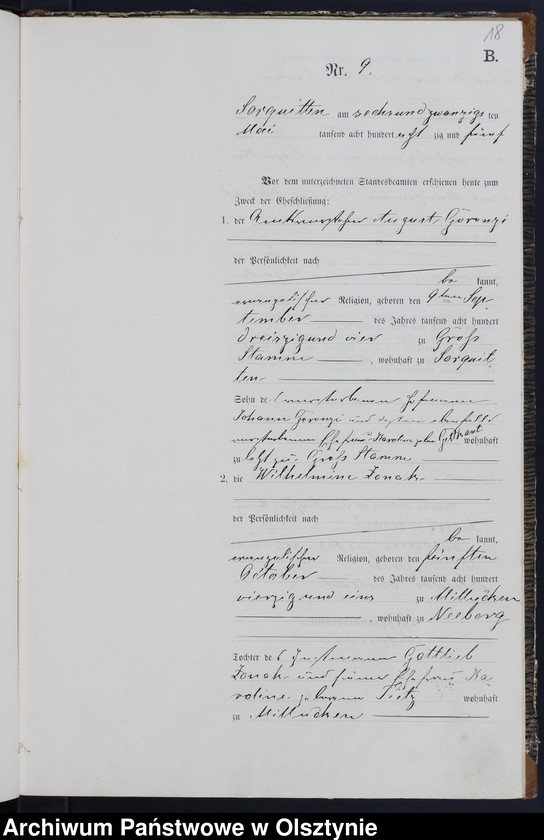 18
B.
Nr. 9.
Sorquitten am sechsundzwanzigsten
Mai tausend acht hundert acht zig und fünf
Vor dem unterzeichneten Standesbeamten erschienen heute zum
Zweck der Eheschließung:
1. der August Goronzi
der Persönlichkeit nach
be kannt,
evangelischer Religion, geboren den 9ten Sep-
tember des Jahres tausend acht hundert
dreizig und vier zu Groß
Stamm , wohnhaft zu Sorquit-
ten
Sohn des verstorbenen
Johann Goronzi und dessen ebenfalls
verstorbenen Ehefrau Karoline geb. wohnhaft
zu letzt zu Groß Stamm
2. die Wilhelmine Zonak
der Persönlichkeit nach
be kannt,
evangelischer Religion, geboren den fünften
October des Jahres tausend acht hundert
vierzig und eins zu Millucken
, wohnhaft zu Neeberg
Tochter des Instmann Gottlieb
Zonak und seiner Ehefrau Ka-
roline geborene Tietz wohnhaft
zu Millucken
Archiwum Państwowe w Olsztynie